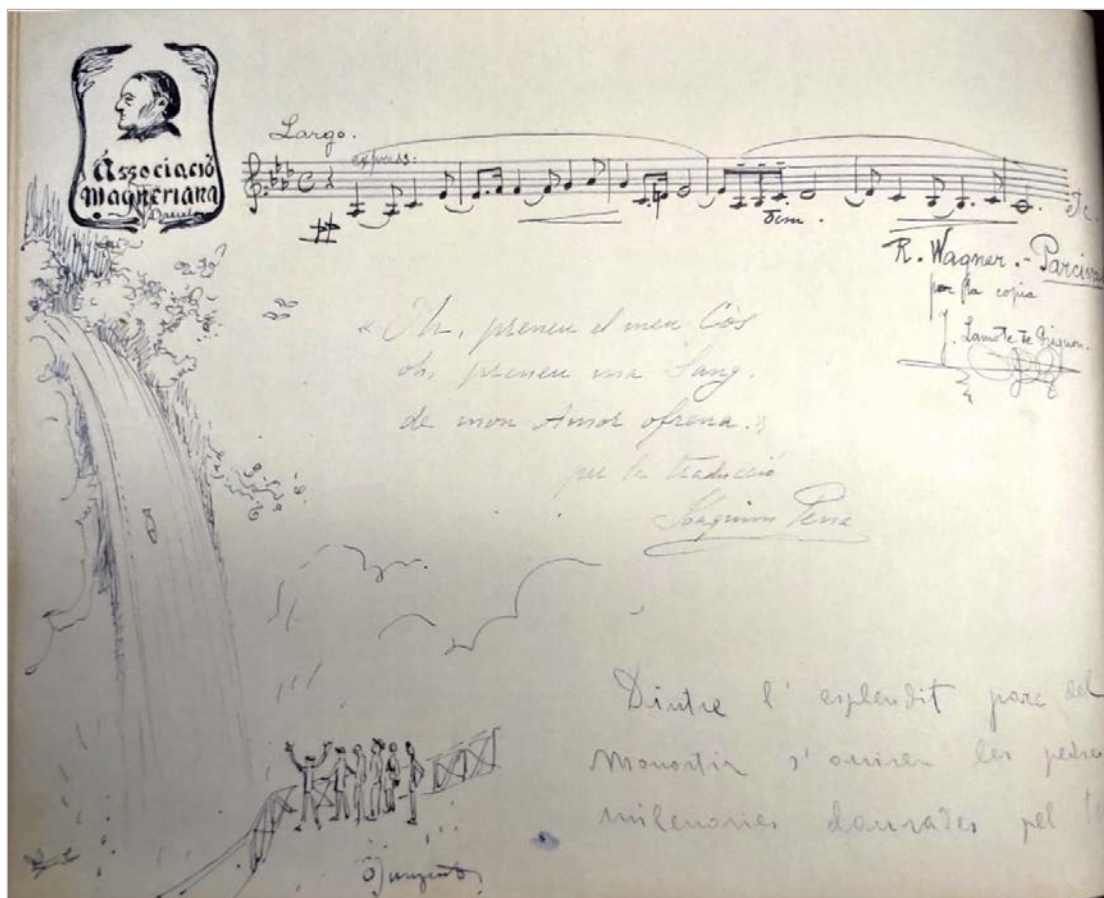 Associació
Wagneriana
Largo.
express:
dim.
R. Wagner. - Parcival
per la copia
J. Lamote de Grignon.
« Oh, preneu el meu Cos
oh, preneu ma Sang.
de mon Amor ofrena. »
per la traducció
Joaquim Pena
Dintre l' esplendit parc del
Monestir s' ouiren les pedres
milenaries daurades pel te